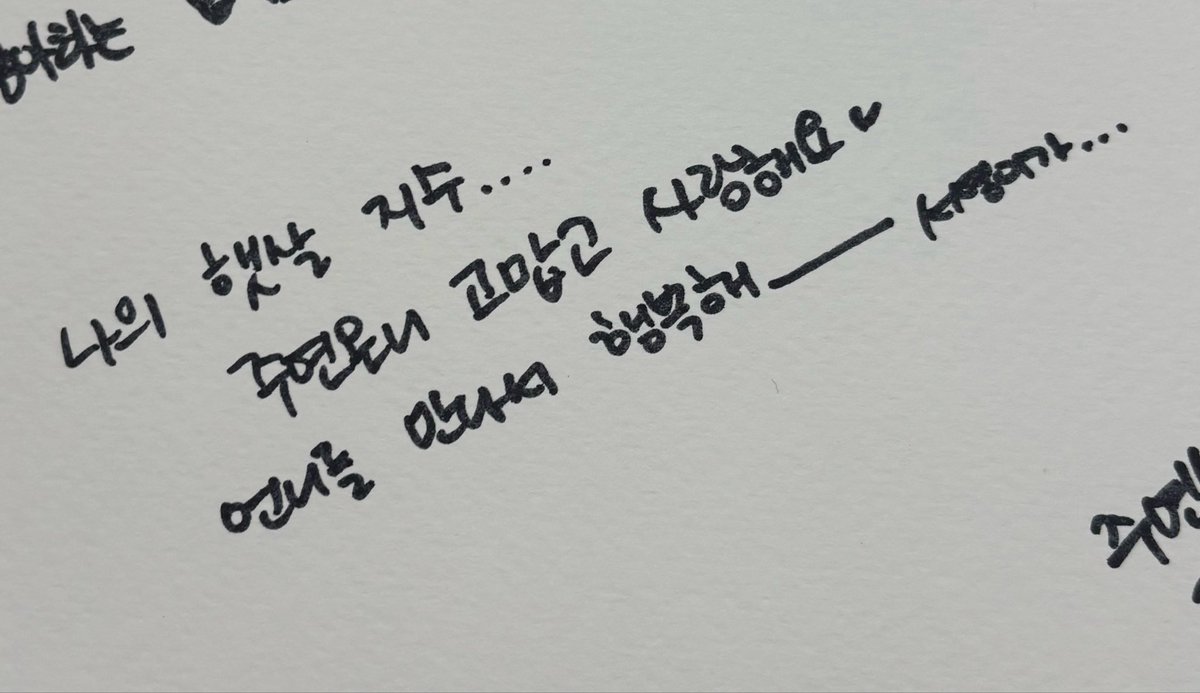 아하는
나의 햇살 지수....
주연온니 고맙고 사랑해요♥
언니를 만나서 행복해——
주연